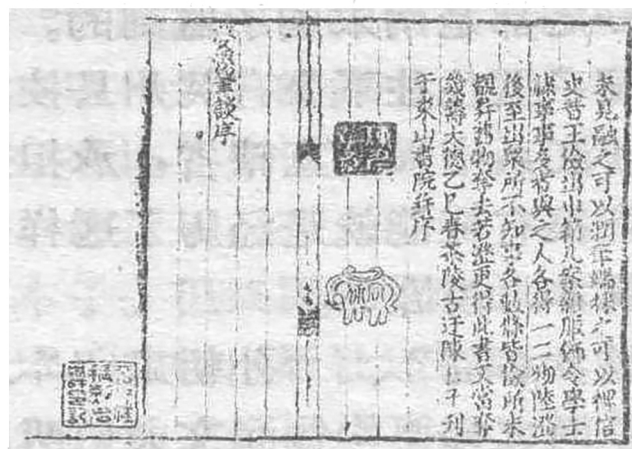 未見融之可以潤筆端採之可以裨信
史昔王儉出巾箱几案雜服飾令學士
隸事事多者與之人各得一二物陸澄
後至出衆所不知事各數條皆儉所未
覩并舊物奪去若澄更得此書又當奪
幾籌大德乙巳春茶陵古迂陳仁子刊
于東山書院序
筆談序